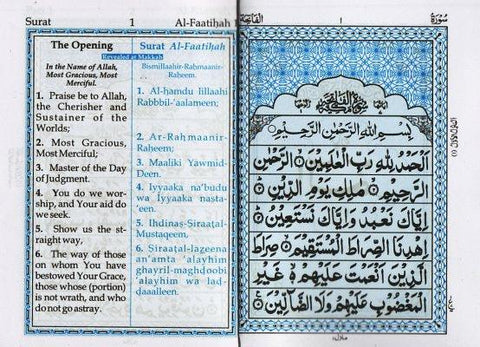 Surat 1 Al-Faatihah 1
The Opening
Revealed at Makkah
In the Name of Allah,
Most Gracious, Most
Merciful.
1. Praise be to Allah,
the Cherisher and
Sustainer of the
Worlds;
2. Most Gracious,
Most Merciful;
3. Master of the Day
of Judgment.
4. You do we wor-
ship, and Your aid do
we seek.
5. Show us the st-
raight way,
6. The way of those
on whom You have
bestowed Your Grace,
those whose (portion)
is not wrath, and who
do not go astray.
Surat Al-Faatiḥah
Bismillaahir-Raḥmaanir-
Raḥeem.
1. Al-ḥamdu lillaahi
Rabbbil-'aalameen;
2. Ar-Raḥmaanir-
Raḥeem;
3. Maaliki Yawmid-
Deen.
4. Iyyaaka na'budu
wa Iyyaaka nasta-
'een.
5. Ihdinaṣ-Ṣiraaṭal-
Mustaqeem,
6. Ṣiraaṭal-lazeena
an'amta 'alayhim
ghayril-maghdoobi
'alayhim wa laḍ-
ḍaaalleen.
الفاتحة ١ سورة
سورة الفاتحة
بِسْمِ اللهِ الرَّحْمٰنِ الرَّحِيْمِ
اَلْحَمْدُ لِلّٰهِ رَبِّ الْعٰلَمِيْنَ الرَّحْمٰنِ
الرَّحِيْمِ مٰلِكِ يَوْمِ الدِّيْنِ
اِيَّاكَ نَعْبُدُ وَاِيَّاكَ نَسْتَعِيْنُ
اِهْدِنَا الصِّرَاطَ الْمُسْتَقِيْمَ صِرَاطَ
الَّذِيْنَ اَنْعَمْتَ عَلَيْهِمْ غَيْرِ
الْمَغْضُوْبِ عَلَيْهِمْ وَلَا الضَّآلِّيْنَ